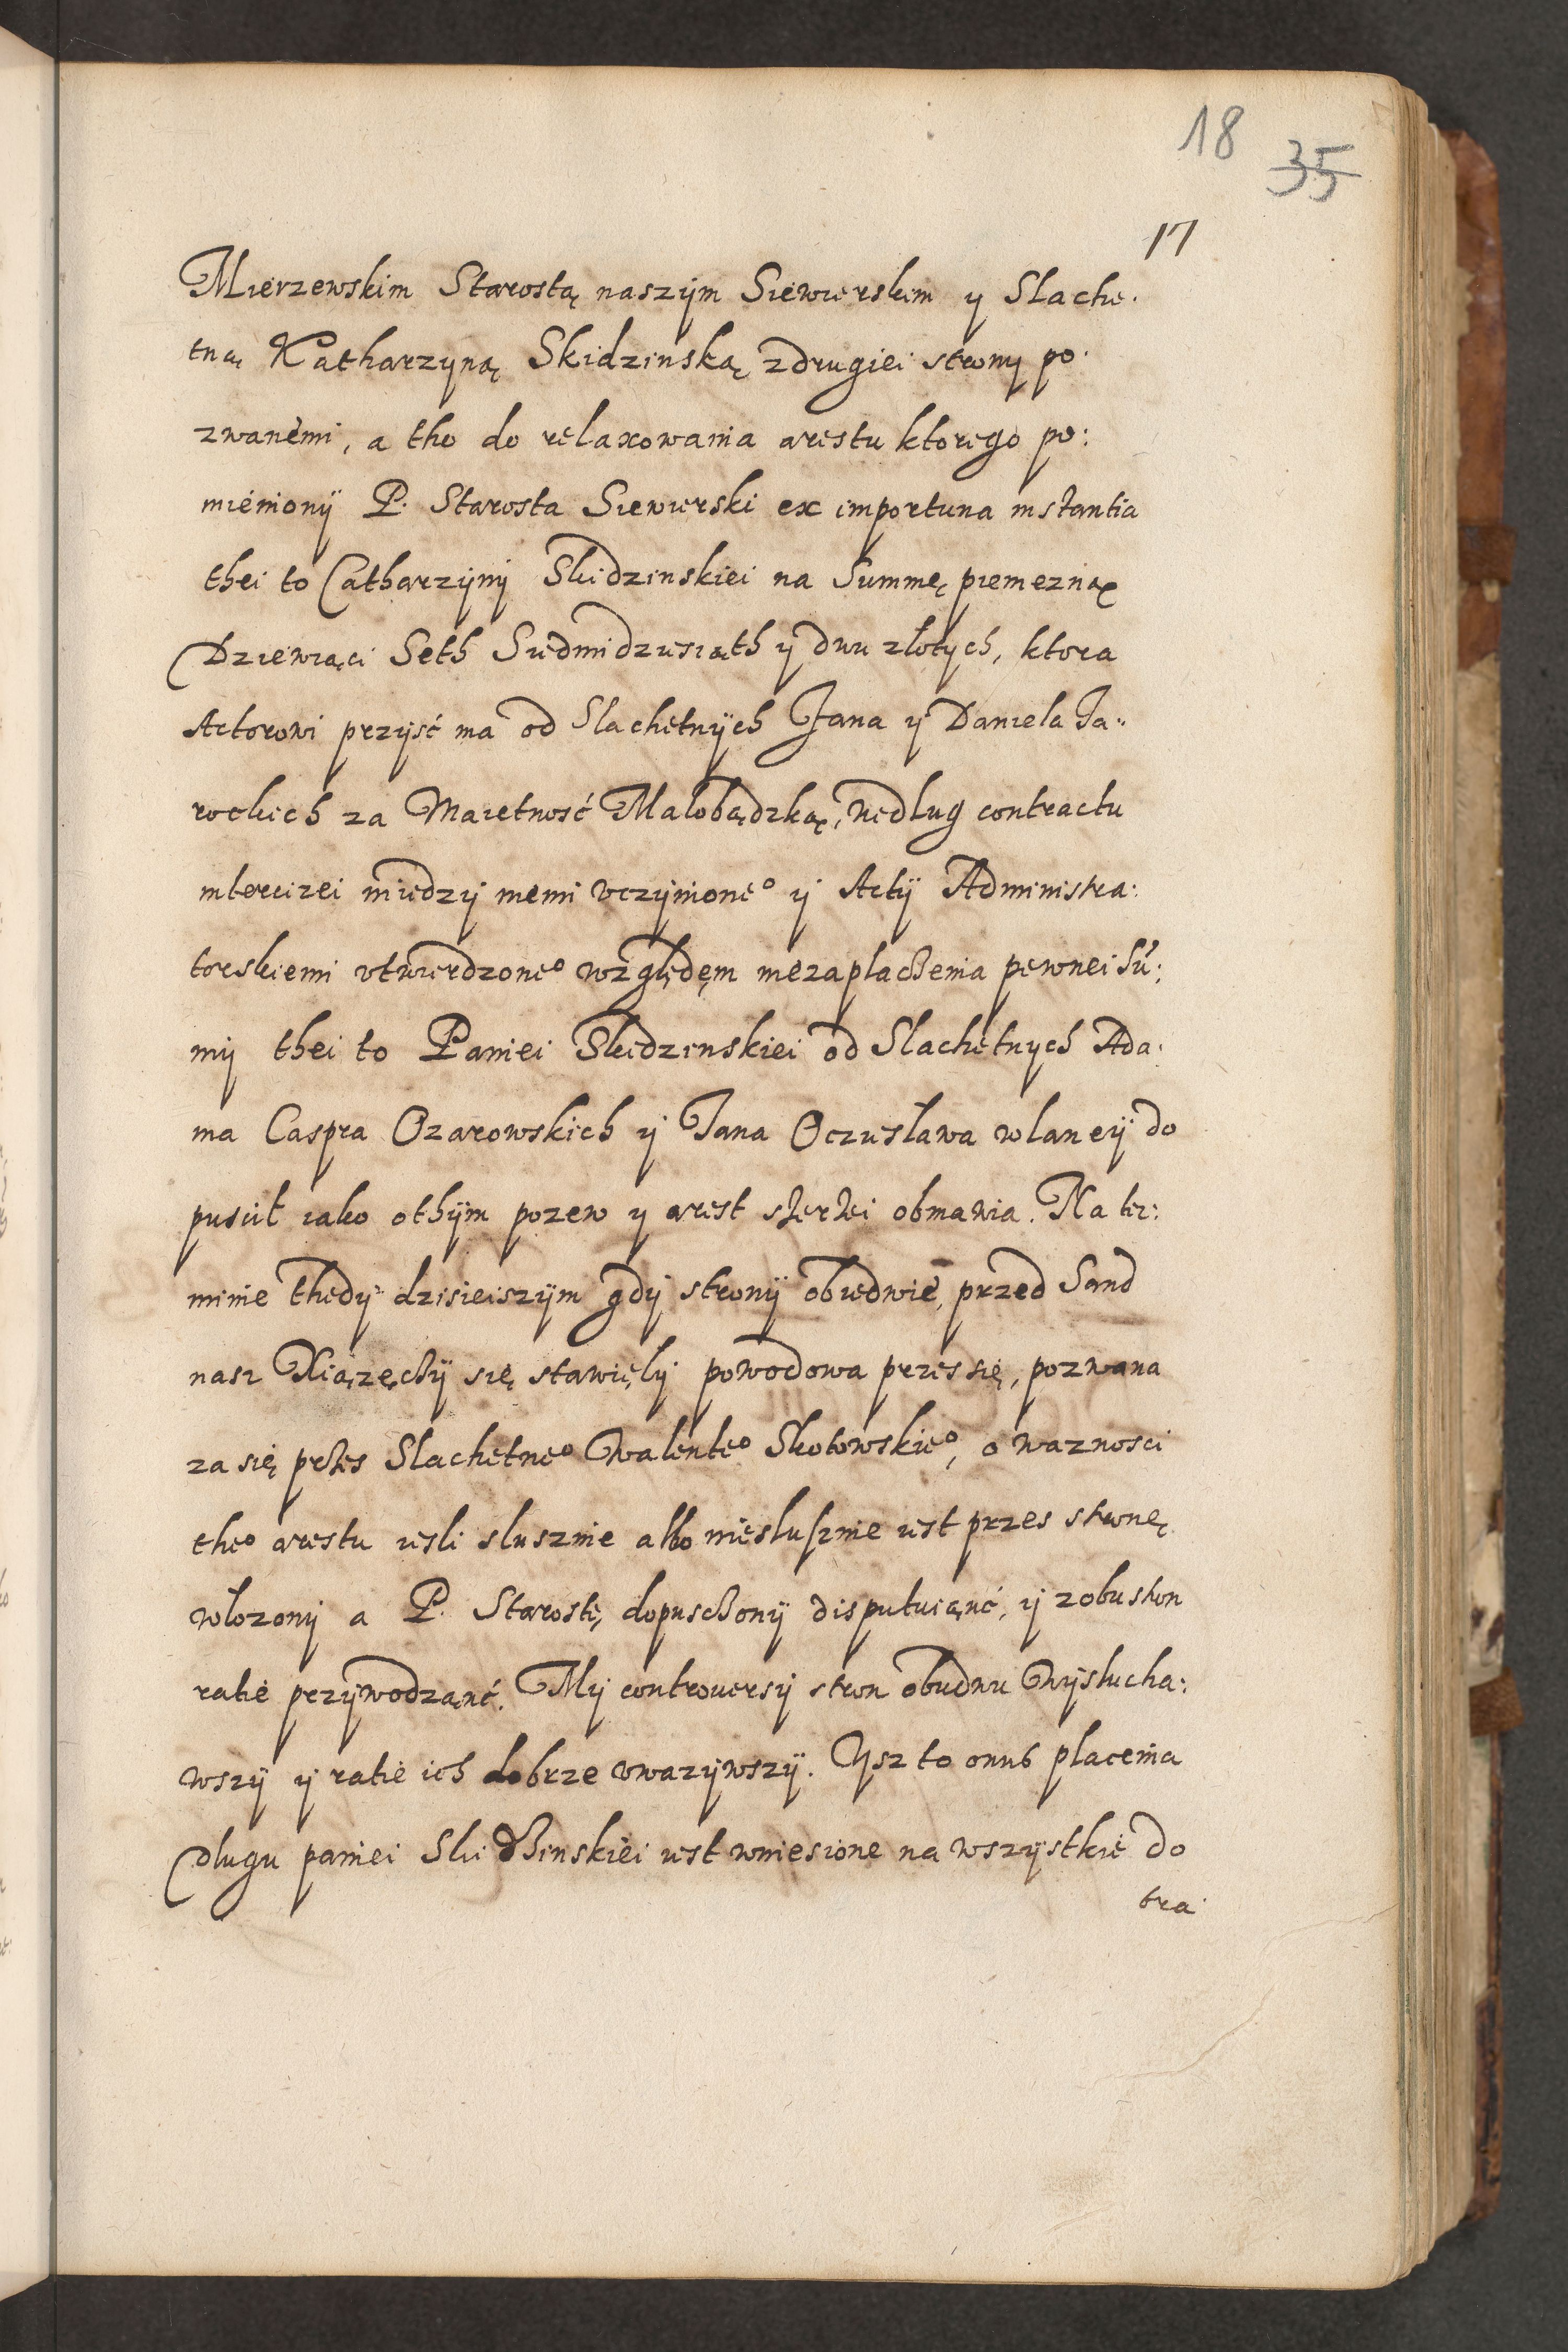 18 35
17
Mierzewskim Starostą naszÿm Siewierskim y Slache.
tną Katharzyną Skidzinską zdrugiei strony po.
zwanemi, a tho do relaxowania arestu ktorego po:
mienionÿ P. Starosta Siewierski ex importuna instantia
thei to Catharzÿny Skidzinskiei na Summę pieniezną
Dziewiąci Seth Siedmidziesiąth y dwu złotych, ktora
Actorowi przÿść ma od Slachetnÿch Jana ÿ Daniela Ja..
rockich za Maietność Malobądzką, wedlug contractu
intercizei miedzÿ niemi vczÿnioneo ÿ Actÿ Administra:
torskiemi vtwierdzoneo względęm niezaplaczenia pewnei Sū:
mÿ thei to Paniei Skidzinskiei od Slachetnych Ada:
ma Caspra Ozarowskich ÿ Jana Oczusława wlaneÿ do
puścił iako othÿm pozew y arest szerzei obmawia. Na ter:
minie thedÿ dzisieiszÿm gdÿ stronÿ obiedwie, przed Sand
nasz Xiązęczÿ się stawięlÿ powodowa przes się, pozwana
za się przes Slachetneo Walenteo Skotowskieo, o waznosci
theo arestu iesli slusznie albo niesłusznie iest przes stronę
włozonÿ a P. Starostę, dopusczonÿ disputuiąnć, ÿ zobu stron
ratie przÿwodzanć. Mÿ controuersÿ stron obudwu Wÿslucha:
wszÿ ÿ ratie ich dobrze vwazÿwszÿ. Ysz to onus placenia
Dlugu paniei Skidzinskiei iest wniesione na wszÿstkie do
bra